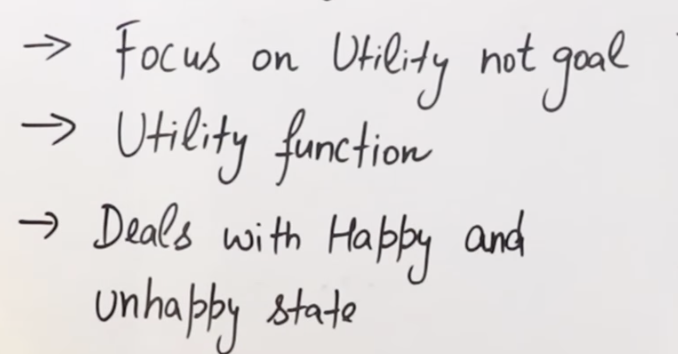 → Focus on Utility not goal
→ Utility function
→ Deals with Happy and
unhappy state